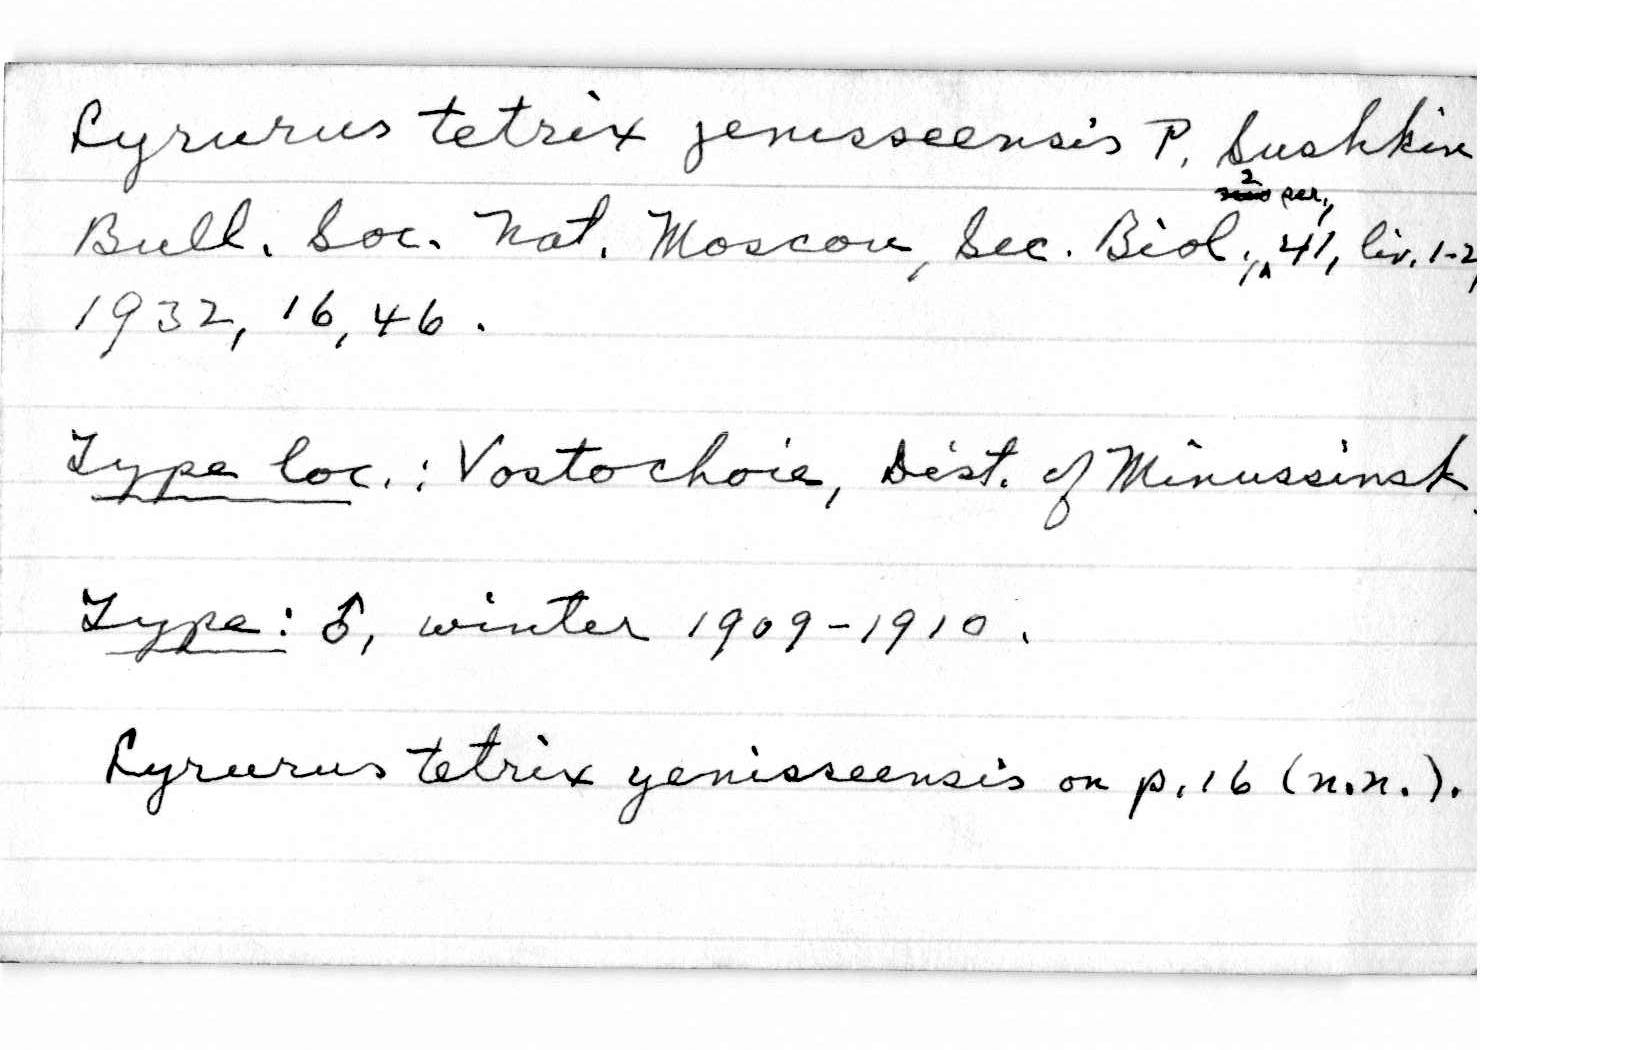 Lyrurus tetrix jenisseensis P. Sushkin
2 ser.,
Bull. Soc. Nat. Moscow, Sec. Biol., 41, liv. 1-2,
1932, 16, 46.
Type loc.: Vostochoie, Dist. of Minussinsk.
Type: ♂, winter 1909-1910.
Lyrurus tetrix yenisseensis on p. 16 (n.n.).